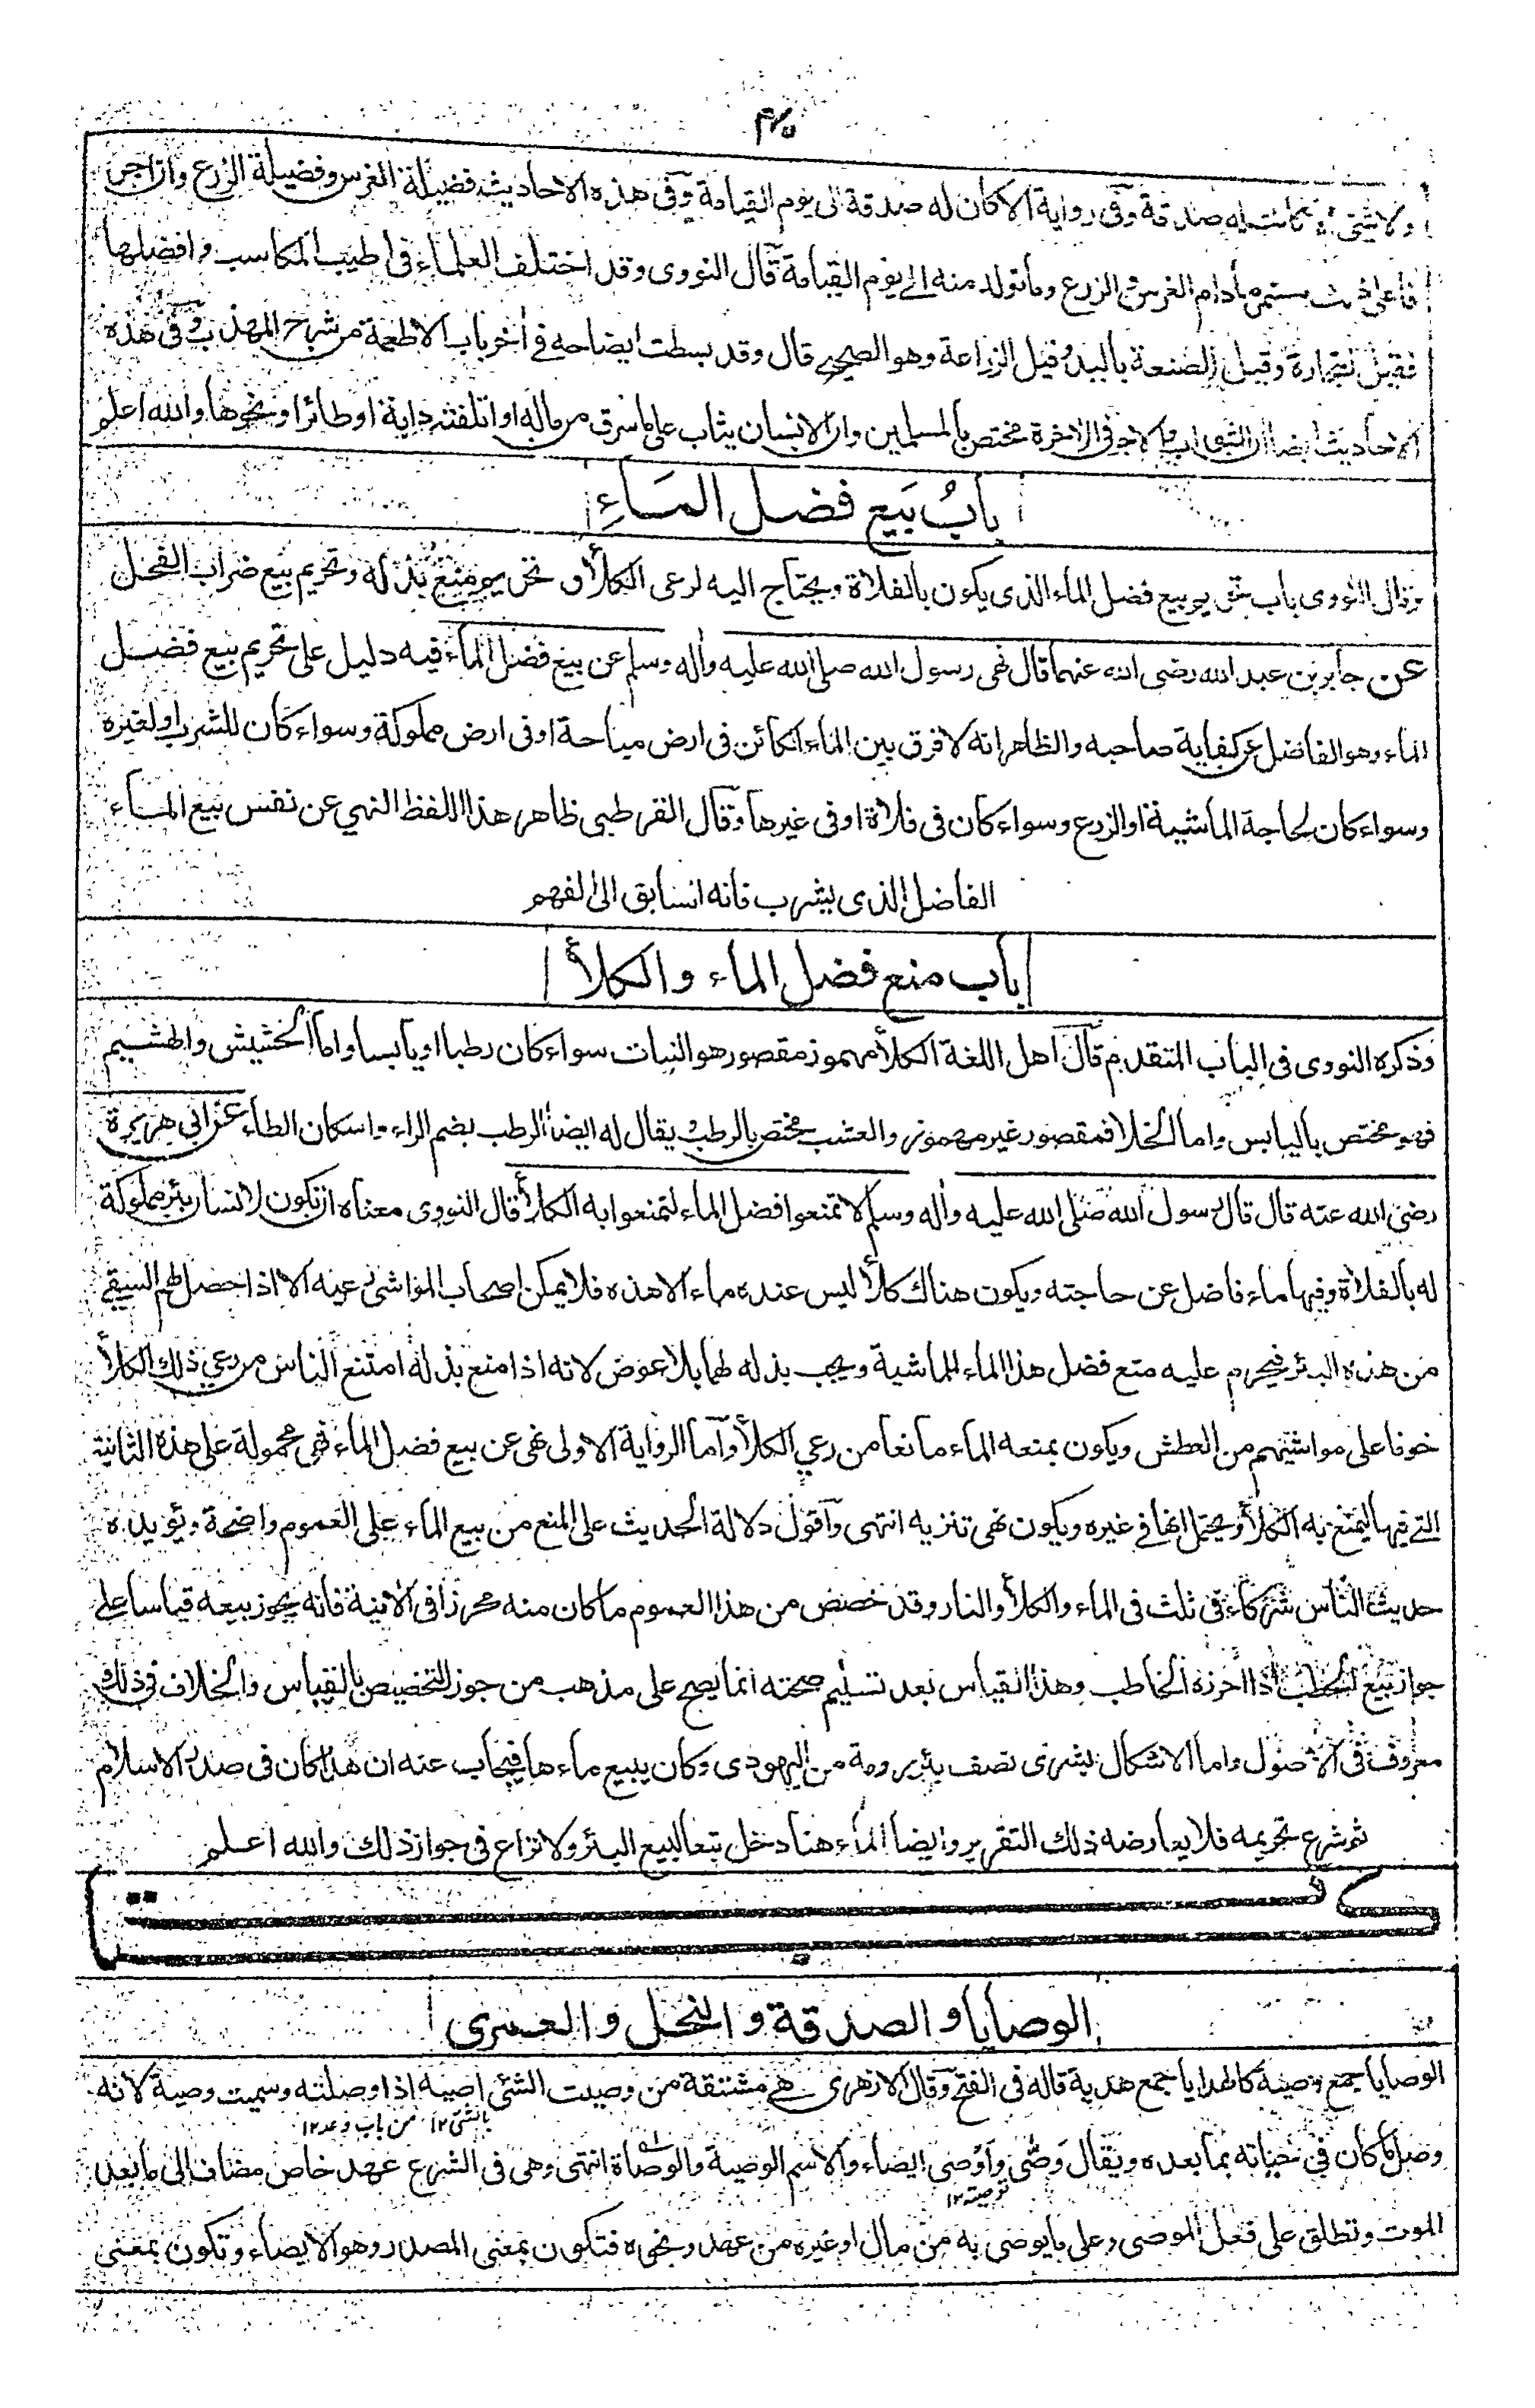 ولا شيء الا كانت له صدقة وفى رواية الا كان له صدقة الى يوم القيامة وفى هذه الاحاديث فضيلة الغرس وفضيلة الزرع وان اجر
فاعلى ذلك مستمر مادام الغرس والزرع وماتولد منه الى يوم القيامة قال النووى وقد اختلف العلماء فى اطيب المكاسب وافضلها
فقيل التجارة وقيل الصنعة باليد وقيل الزراعة وهو الصحيح قال وقد بسطت ايضاحه فى اٰخر باب الاطعمة من شرح المهذب وفى هذه
الاحاديث ايضا ان الثواب والاجر فى الاٰخرة مختص بالمسلمين وان الانسان يثاب على ما سرق من ماله او اتلفته دابة او طائر او نحوها والله اعلم
بابُ بَيع فضل المَاءِ
وقال النووى باب تحريم بيع فضل الماء الذى يكون بالفلاة ويحتاج اليه لرعى الكلأ وتحريم منع بذله وتحريم بيع ضراب الفحل
عن جابر بن عبد الله رضى الله عنهما قال نهى رسول الله صلى الله عليه واٰله وسلم عن بيع فضل الماء فيه دليل على تحريم بيع فضل
الماء وهو الفاضل عن كفاية صاحبه والظاهر انه لا فرق بين الماء الكائن فى ارض مباحة او فى ارض مملوكة وسواء كان للشرب او لغيره
وسواء كان لحاجة الماشية او الزرع وسواء كان فى فلاة او فى غيرها وقال القرطبى ظاهر هذا اللفظ النهي عن نفس بيع الماء
الفاضل الذى يشرب فانه السابق الى الفهم
باب منع فضل الماء والكلأ
وذكره النووى فى الباب المتقدم قال اهل اللغة الكلأ مهموز مقصور هو النبات سواء كان رطبا او يابسا واما الحشيش والهشيم
فهو مختص باليابس واما الخلا فمقصور غير مهموز والعشب مختص بالرطب ويقال له ايضا الرطب بضم الراء واسكان الطاء عن ابى هريرة
رضى الله عنه قال قال رسول الله صلى الله عليه واٰله وسلم لا تمنعوا فضل الماء لتمنعوا به الكلأ قال النووى معناه ان تكون لانسان بئر مملوكة
له بالفلاة وفيها ماء فاضل عن حاجته ويكون هناك كلأ ليس عنده ماء الا هذه فلا يمكن اصحاب المواشى رعيه الا اذا حصل لهم السقي
من هذه البئر فيحرم عليه منع فضل هذا الماء للماشية ويجب بذله لها بلا عوض لانه اذا منع بذله امتنع الناس من رعي ذلك الكلأ
خوفا على مواشيهم من العطش ويكون بمنعه الماء مانعا من رعي الكلأ واما الرواية الاولى نهى عن بيع فضل الماء فهى محمولة على هذه الثانية
التى فيها ليمنع به الكلأ ويحتمل انها فى غيره ويكون نهى تنزيه انتهى واقول دلالة الحديث على المنع من بيع الماء على العموم واضحة ويؤيده
حديث الناس شركاء فى ثلث فى الماء والكلأ والنار وقد خصص من هذا العموم ما كان منه محرزا فى الاٰنية فانه يجوز بيعه قياسا على
جواز بيع الحطب اذا احرزه الحاطب وهذا القياس بعد تسليم صحته انما يصح على مذهب من جوز التخصيص بالقياس والخلاف فى ذلك
معروف فى الاصول واما الاشكال بشرى نصف بئر رومة من اليهودى وكان يبيع ماءها فيجاب عنه ان هذا كان فى صدر الاسلام
ثم شرع تحريمه فلا يعارضه ذلك التقرير وايضا الماء هنا دخل تبعا لبيع البئر ولا نزاع فى جواز ذلك والله اعلم
كتب
الوصايا والصدقة والنحل والعمرى
الوصايا جمع وصية كالهدايا جمع هدية قاله فى الفتح وقال الازهرى هى مشتقة من وصيت الشئ اصيه اذا وصلته وسميت وصية لانه
بالشئ ١٢ من باب وعد ١٢
وصل ما كان فى حياته بما بعده ويقال وَصّٰى وَاَوْصٰى ايصاء والاسم الوصية والوصاة انتهى وهى فى الشرع عهد خاص مضاف الى ما بعد
توصية ١٢
الموت وتطلق على فعل الموصى وعلى ما يوصى به من مال او غيره من عهد ونحوه فتكون بمعنى المصدر وهو الايصاء وتكون بمعنى